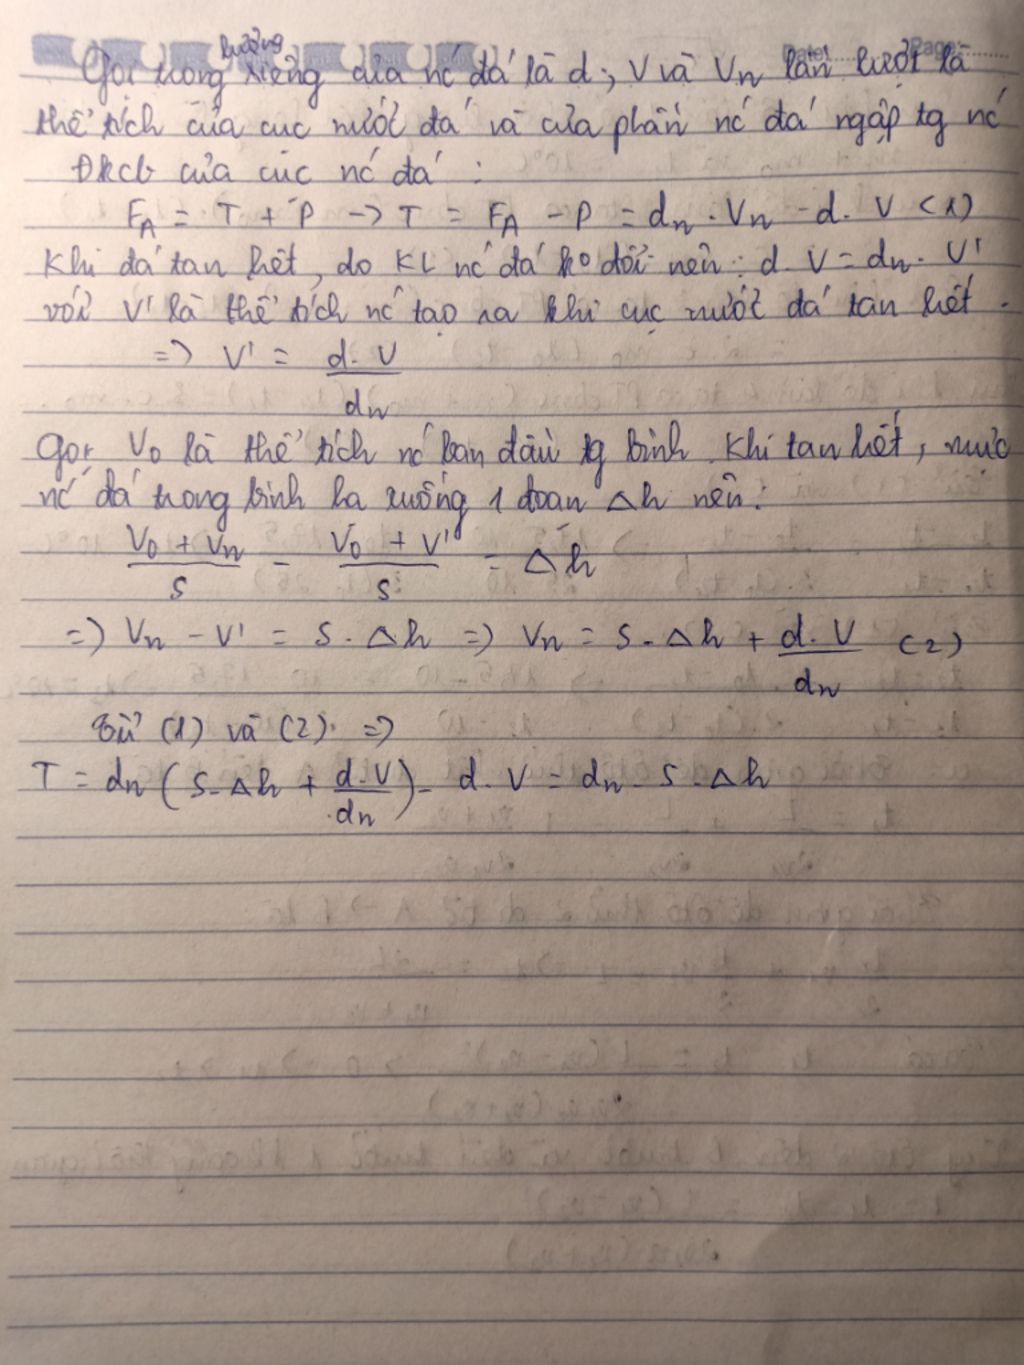 Date: Page:
lượng
Gọi trọng riêng của nc đá là d ; V và Vn lần lượt là
thể tích của cục nước đá và của phần nc đá ngập tg nc
ĐKCB của cục nc đá :
F_A = T + P -> T = F_A - P = dn . Vn - d. V (1)
Khi đá tan hết, do KL nc đá ko đổi nên : d. V = dn . V'
với V' là thể tích nc tạo ra khi cục nước đá tan hết .
=> V' = d. V / dn
Gọi V0 là thể tích nc ban đầu tg bình. Khi tan hết, mực
nc đá trong bình hạ xuống 1 đoạn Δh nên:
(V0 + Vn)/S - (V0 + V')/S = Δh
=> Vn - V' = S . Δh => Vn = S. Δh + d. V / dn (2)
Từ (1) và (2) =>
T = dn ( S. Δh + d.V / dn ) - d. V = dn . S . Δh